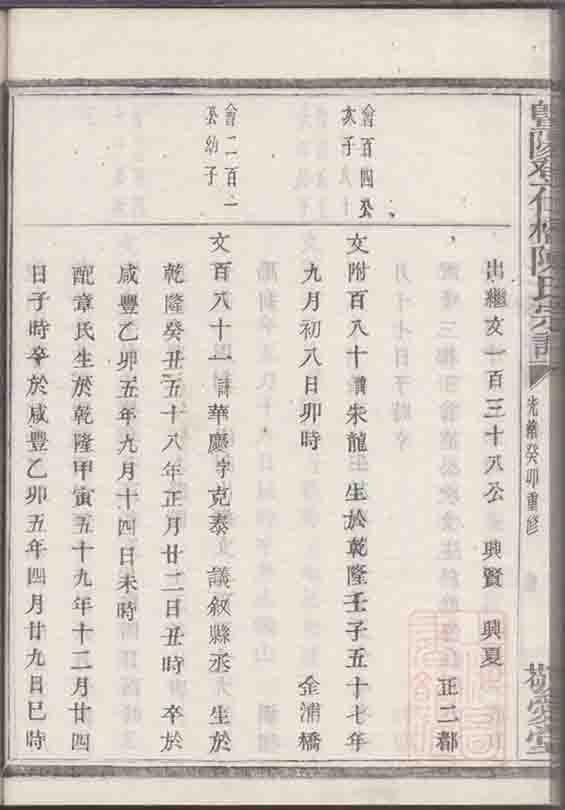 陳氏宗譜
光緒癸卯重修
敬愛堂
出繼文一百三十八公 興賢 興夏
正二都
會百四公
次子
文附百八十諱朱龍 生於乾隆壬子五十七年
九月初八日卯時 金浦橋
會二百一
公幼子
文百八十一諱華慶字克泰 議敘縣丞 生於
乾隆癸丑五十八年正月廿二日丑時 卒於
咸豐乙卯五年九月十四日未時
配章氏生於乾隆甲寅五十九年十二月廿四
日子時卒於咸豐乙卯五年四月廿九日巳時